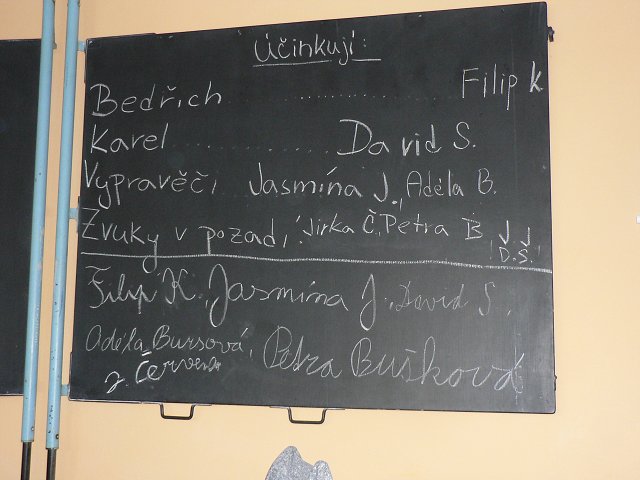 Účinkují:
Bedřich .................... Filip K
Karel .................... David S.
Vypravěči Jasmína J., Adéla B.
Zvuky v pozadí: Jirka Č, Petra B, J. J.
D.Š.
Filip K., Jasmína J., David S.,
Adéla Bursová, Petra Bušková
J. Červenka